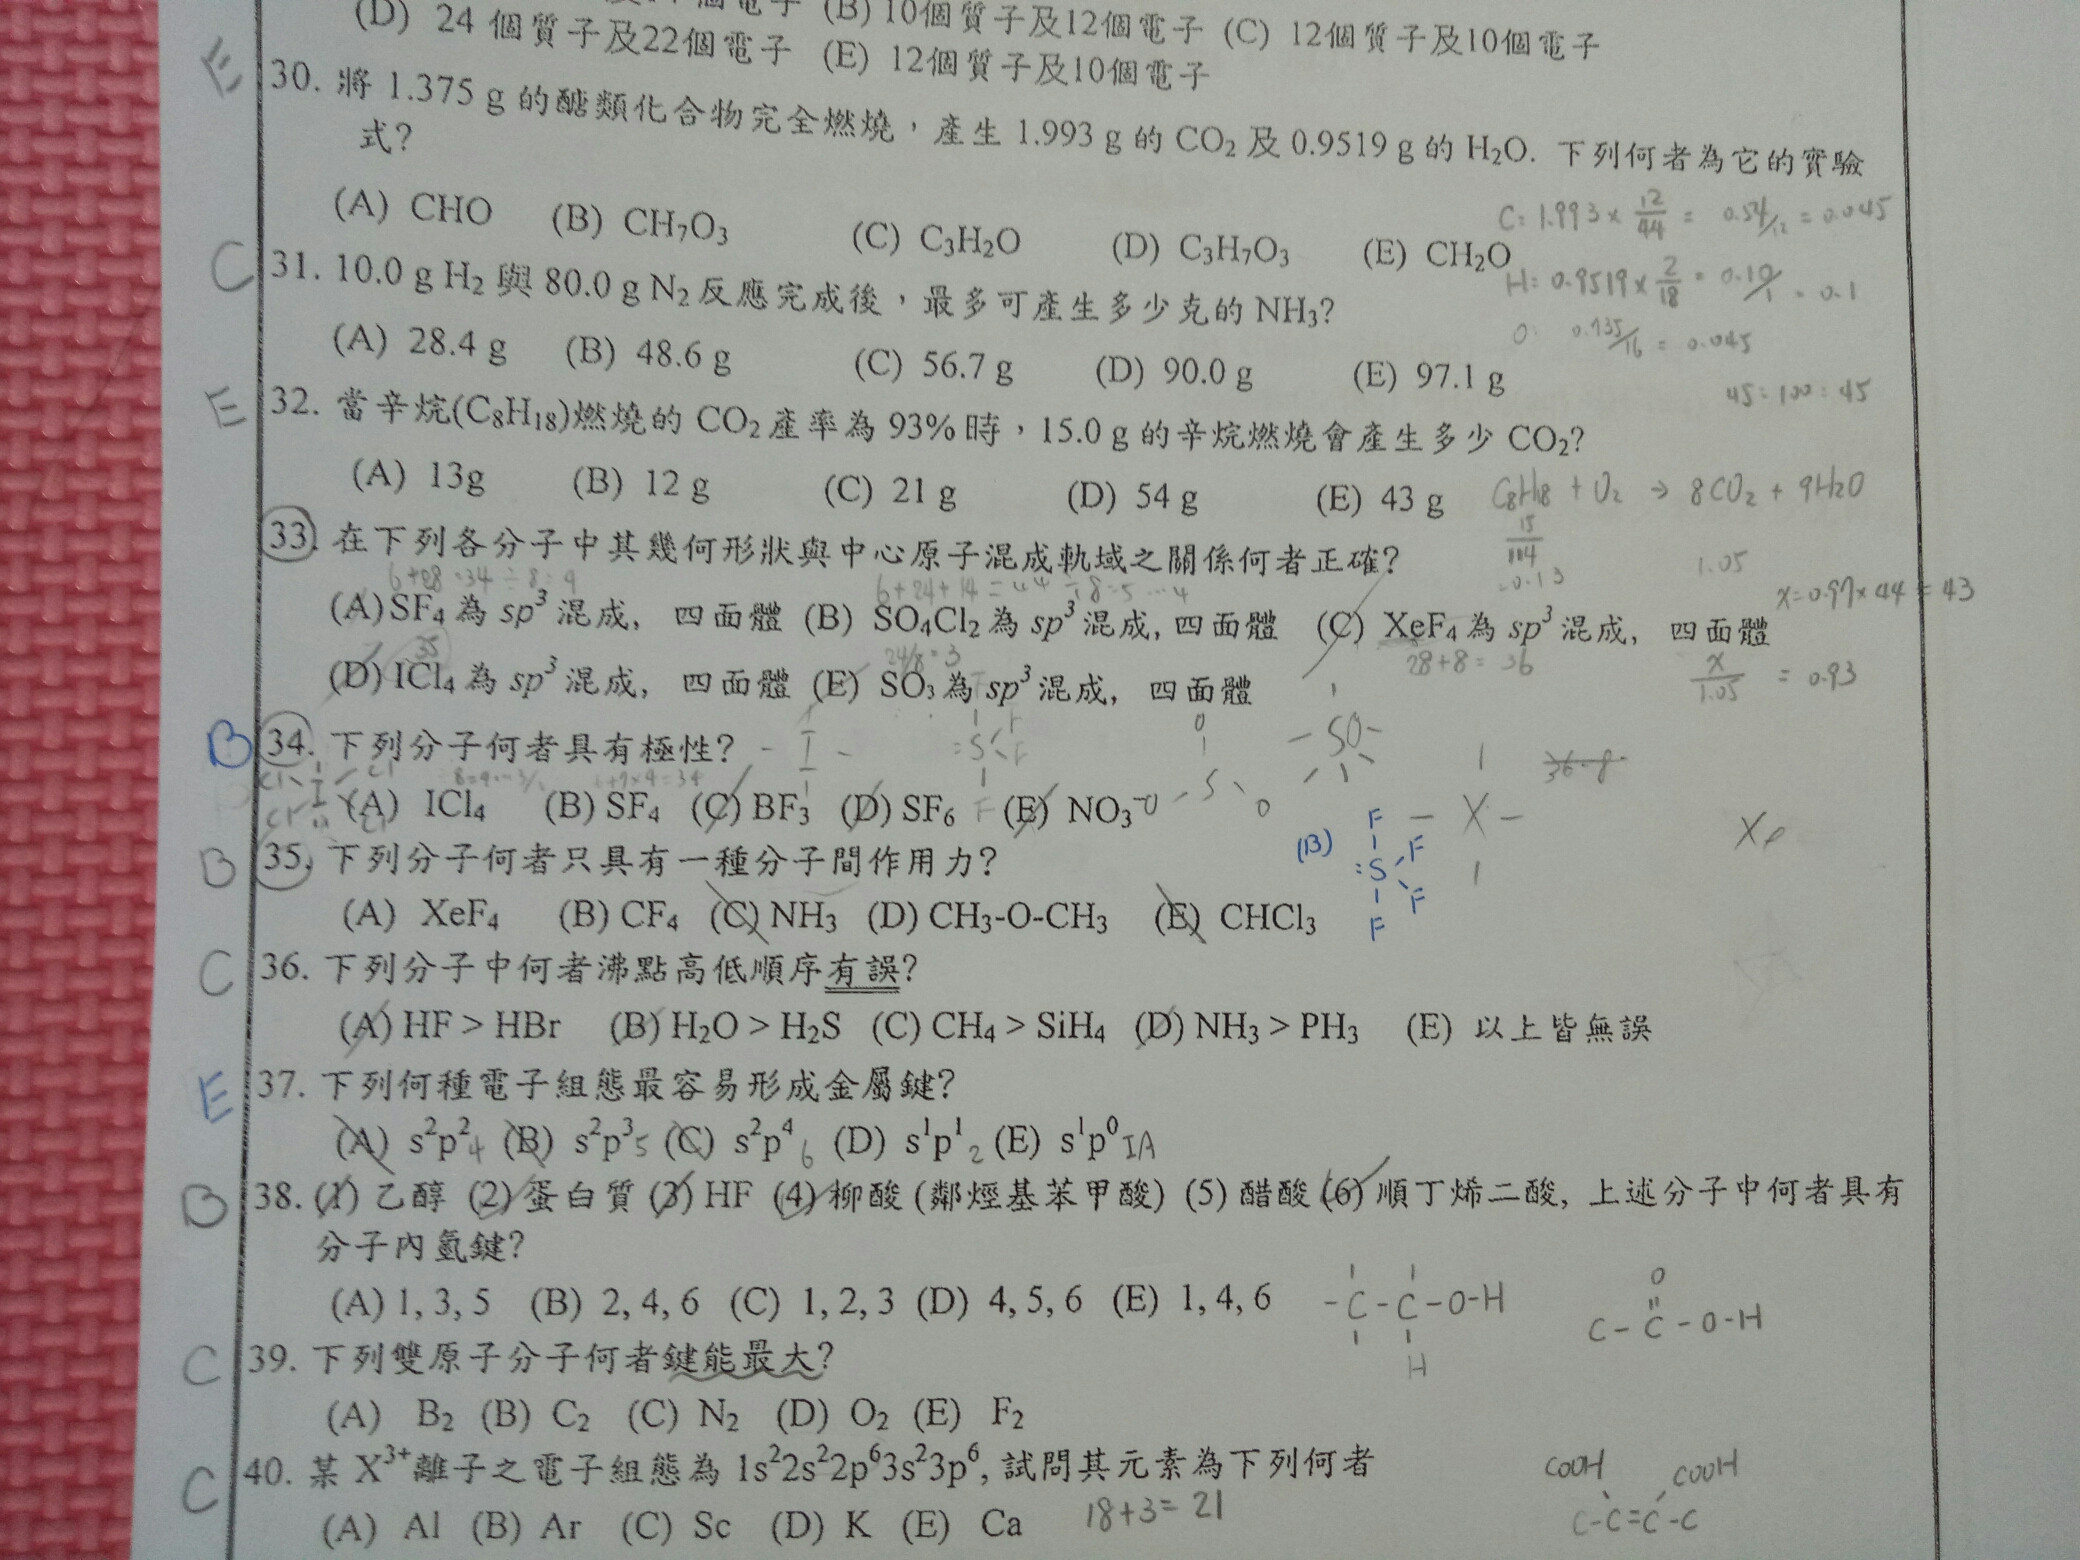 (D) 24 個質子及22個電子 (B) 10個質子及12個電子 (C) 12個質子及10個電子
(E) 12個質子及10個電子
E 30. 將 1.375 g 的醣類化合物完全燃燒，產生 1.993 g 的 CO₂ 及 0.9519 g 的 H₂O. 下列何者為它的實驗
式?
(A) CHO (B) CH₇O₃ (C) C₃H₂O (D) C₃H₇O₃ (E) CH₂O
C: 1.993 × 12/44 = 0.54/12 = 0.045
H: 0.9519 × 2/18 = 0.10/1 = 0.1
O: 0.735/16 = 0.045
45 : 100 : 45
C 31. 10.0 g H₂ 與 80.0 g N₂ 反應完成後，最多可產生多少克的 NH₃?
(A) 28.4 g (B) 48.6 g (C) 56.7 g (D) 90.0 g (E) 97.1 g
E 32. 當辛烷(C₈H₁₈)燃燒的 CO₂ 產率為 93% 時，15.0 g 的辛烷燃燒會產生多少 CO₂?
(A) 13g (B) 12 g (C) 21 g (D) 54 g (E) 43 g
C₈H₁₈ + O₂ → 8CO₂ + 9H₂O
15/114 1.05
x = 0.97 × 44 = 43
x/1.05 = 0.93
33. 在下列各分子中其幾何形狀與中心原子混成軌域之關係何者正確?
(A) SF₄ 為 sp³ 混成, 四面體 (B) SO₄Cl₂ 為 sp³ 混成, 四面體 (C) XeF₄ 為 sp³ 混成, 四面體
35 24/8 = 3 28+8 = 36
(D) ICl₄ 為 sp³ 混成, 四面體 (E) SO₃ 為 sp³ 混成, 四面體
B 34. 下列分子何者具有極性?
(A) ICl₄ (B) SF₄ (C) BF₃ (D) SF₆ (E) NO₃⁻
(B) F S F F F
B 35. 下列分子何者只具有一種分子間作用力?
(A) XeF₄ (B) CF₄ (C) NH₃ (D) CH₃-O-CH₃ (E) CHCl₃
C 36. 下列分子中何者沸點高低順序有誤?
(A) HF > HBr (B) H₂O > H₂S (C) CH₄ > SiH₄ (D) NH₃ > PH₃ (E) 以上皆無誤
E 37. 下列何種電子組態最容易形成金屬鍵?
(A) s²p² 4 (B) s²p³ 5 (C) s²p⁴ 6 (D) s¹p¹ 2 (E) s¹p⁰ IA
B 38. (1) 乙醇 (2) 蛋白質 (3) HF (4) 柳酸 (鄰烴基苯甲酸) (5) 醋酸 (6) 順丁烯二酸, 上述分子中何者具有
分子內氫鍵?
(A) 1, 3, 5 (B) 2, 4, 6 (C) 1, 2, 3 (D) 4, 5, 6 (E) 1, 4, 6
-C-C-O-H
H
O
C-C-O-H
C 39. 下列雙原子分子何者鍵能最大?
(A) B₂ (B) C₂ (C) N₂ (D) O₂ (E) F₂
C 40. 某 X³⁺ 離子之電子組態為 1s²2s²2p⁶3s²3p⁶, 試問其元素為下列何者
(A) Al (B) Ar (C) Sc (D) K (E) Ca
18+3= 21
COOH COOH
C-C=C-C